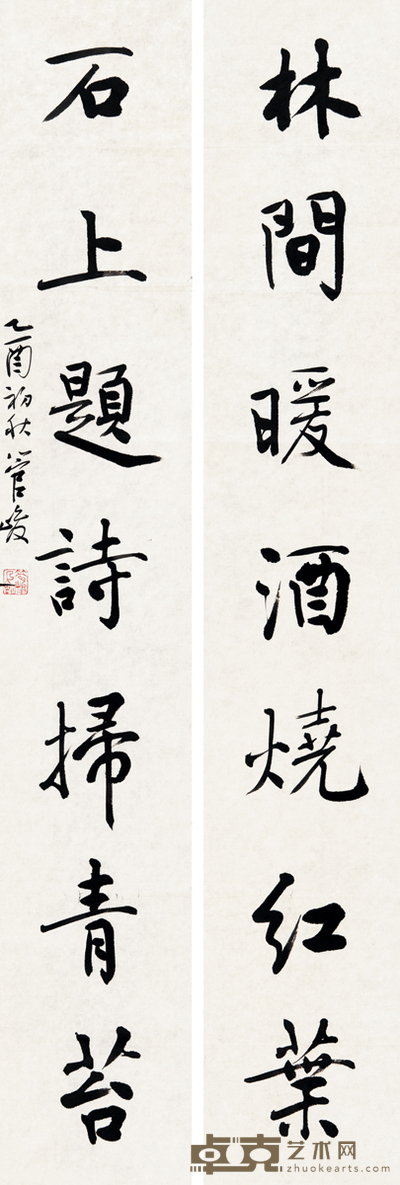 林間暖酒燒紅葉
石上題詩掃青苔
乙酉初秋 管峻
卓克艺术网
zhuokearts.com